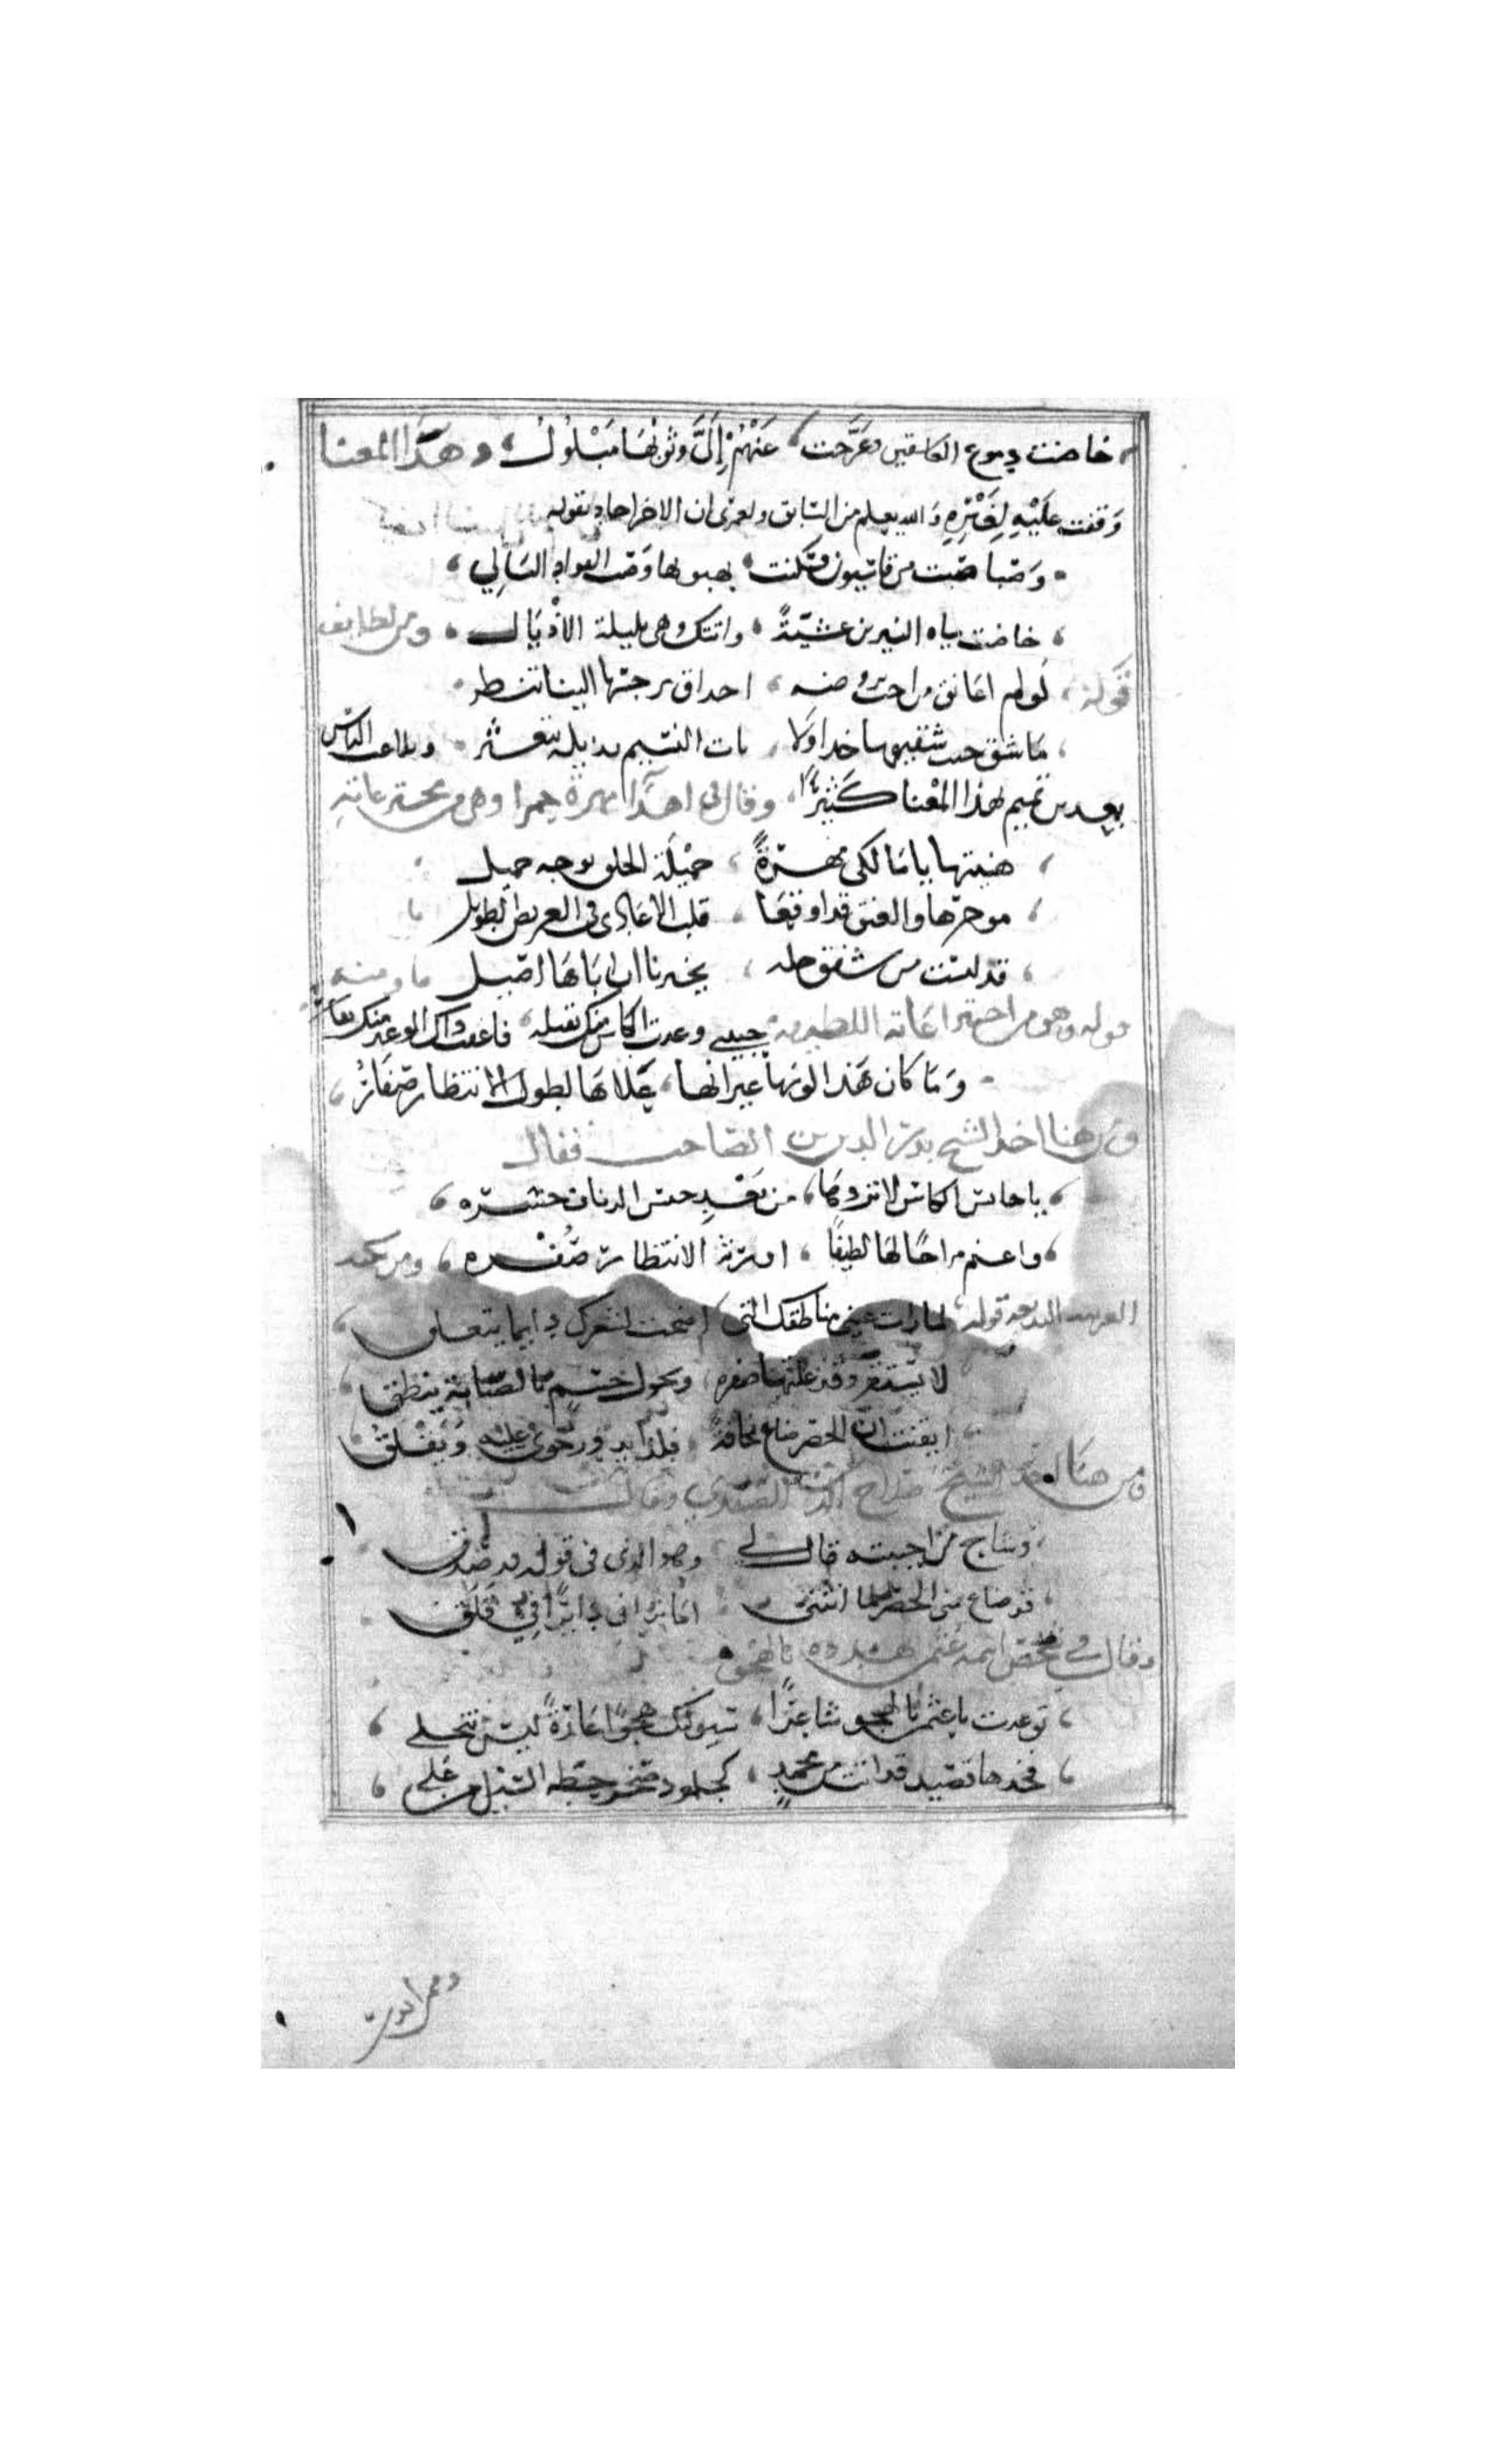 خاضت دموع العاشقين وعرجت ، عَنْهُمْ إِلَىَّ وثوبُهَا مَبْلُولُ ، وهَذا المعنا
وَقفت عَلَيْهِ لِغَيْرِهِ وَالله يعلم من السّابق ولعمرى ان الاخر اجاد بقوله
وَصَبا صَبت من قاسيون فسَكنت ، بهبوبها وَصَب الفواد البَالِي ،
، خاضت مياه النيربين عشيّةً ، واتتك وهى بليلة الأَذْيَال ، ومن لطايف
قَولهُ ، لولم اعانق من احب بروضه ، احداق نرجسها الينا تنظر
، مَا شق جيب شقيقها حسدا ولا ، بات النسيم بذيله يتعثر . وتلاعب الناس
بعد بن تميم بهذا المعْنا كَثيرًا ، وقال فى اهدا مهرة حمرا وهى من مخترعاتهِ
، هنيتها يا مَالكى مُهرةً ، جَمْيلَة الخلق بوجه جميل
، موخرها والعنق قد اوقعَا ، قلب الاعَادى فى العريض الطويل
، قد لبست من شفق حله ، يخبرنا ان ابَاهَا اصَيل ومنه
قوله وهو من اختراعَاته اللطيفه ، حبيبى وعدت الكاس منك بقبله ، فاعقب ذاك الوعد منك نفَارُ
- وَمَا كان هَذا لونهَا غير انها ، عَلاهَا لطول الانتظار صَفَارُ ،
ومن هنا اخذ الشيخ بدر الدين بن الصّاحب فقال
، يا حابس الكاس لا تزدهَا ، من بَعْدِ حبس الدنان حسَره ،
، واغنم مزاجًا لهَا لطيفًا ، اورثه الانتظار صُفْره ، ومن نكته
الغريبه البديعه قوله ، لما رات عينى مناطقك التى اضحت لخصرك دايما يتعلق ،
لا يستقر وقد علتها صفره ، وبحول جسم بالصبَابة ينطق ،
ايقنت انّ الخصر ضاع نحافةً ، فلذا يدور جوى عليه وَيَقْلقُ
ومن هنَا اخذ الشيخ صَلاح الدين الصَفَدي وقال
، وشاح من احببته قال لي وهو الذى فى قوله قد صَدق
، قد ضاع منى الخصر لما انثنى امَا ترانى دايرًا فِى قَلَق
وقال في شخص اسمه عثمن تهدده بالهَجو
، توعدت يا عثمن بالهجو شاعرًا ، سَيوليك هجوًا عَارهُ ليسَ ينجلى ،
، فخدها قصَيد قد اتت من محمدٍ ، كجلمود صَخر حَطه السَيْل من عَلي ،
ومن ابوَ